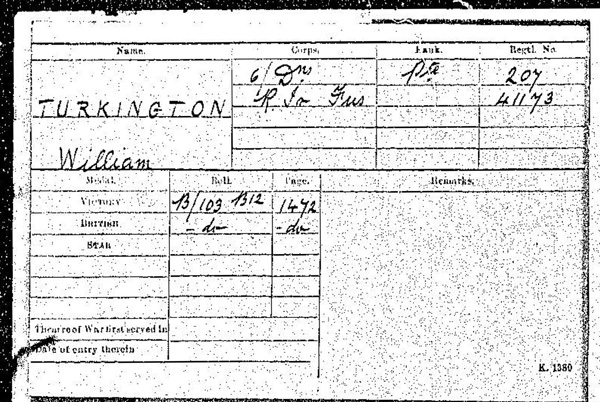 Name. Corps. Rank. Regtl. No.
6/Dns Pte 207
TURKINGTON R Ir Fus 41173
William
Medal. Roll. Page. Remarks.
VICTORY B/103 B12 1472
BRITISH - do - - do
STAR
Theatre of War first served in
Date of entry therein
K. 1380